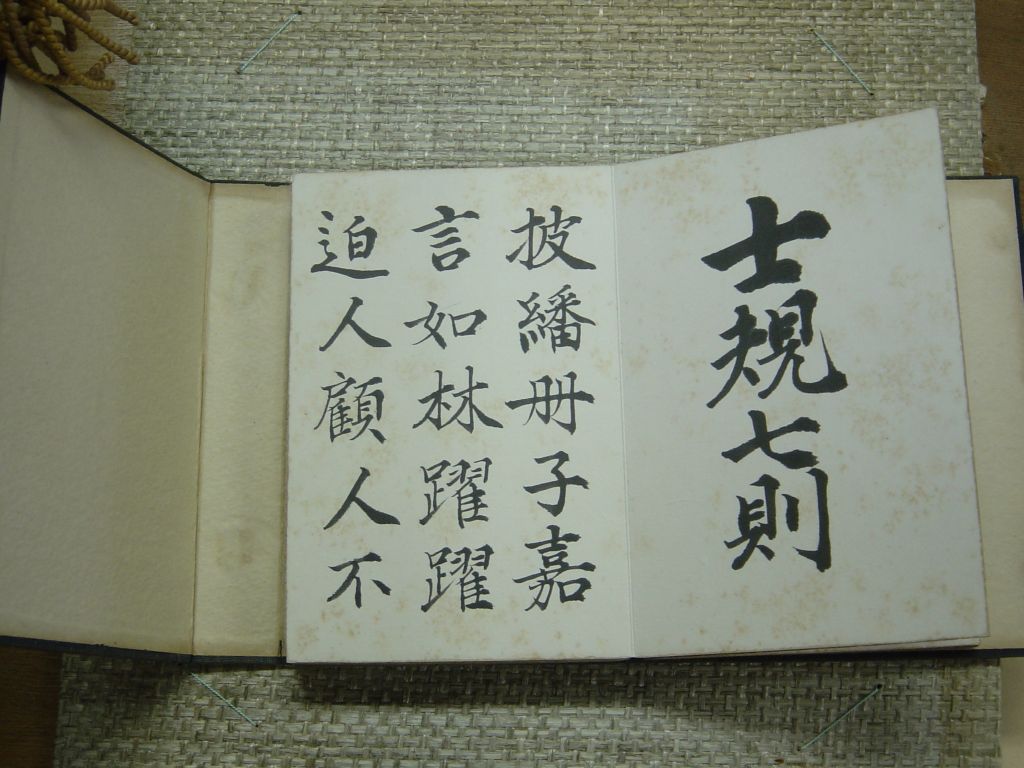 士規七則
披繙册子嘉
言如林躍躍
迫人顧人不